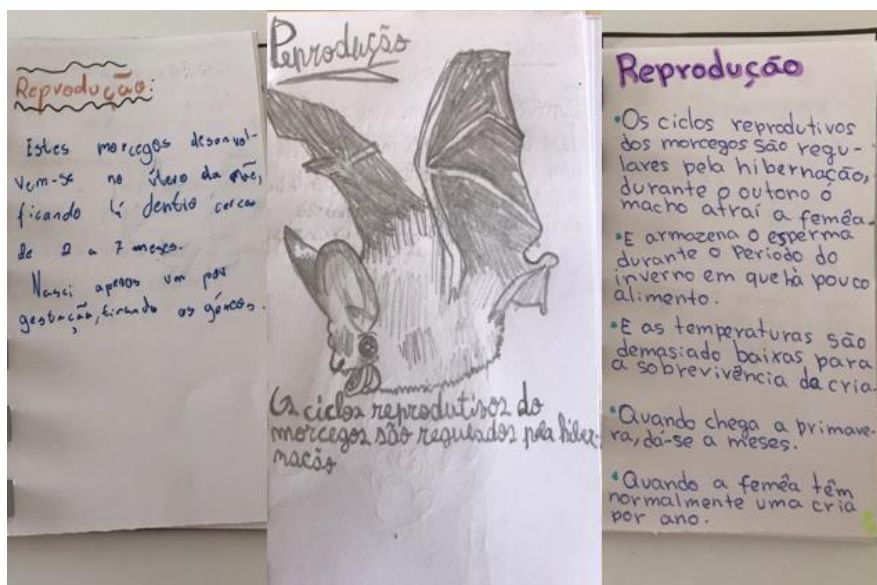 Reprodução:
Estes morcegos desenvol-
vem-se no útero da mãe,
ficando lá dentro cerca
de 2 a 7 meses.
Nasci apenas um por
gestação, tirando os gémeos.
Reprodução
Os ciclos reprodutivos do
morcegos são regulados pela hiber-
nacão
Reprodução
•Os ciclos reprodutivos
dos morcegos são regu-
lares pela hibernação,
durante o outono o
macho atraí a femêa.
•E armazena o esperma
durante o período do
inverno em que há pouco
alimento.
•E as temperaturas são
demasiado baixas para
a sobrevivência da cria.
•Quando chega a primave-
ra, dá-se a meses.
•Quando a femêa têm
normalmente uma cria
por ano.